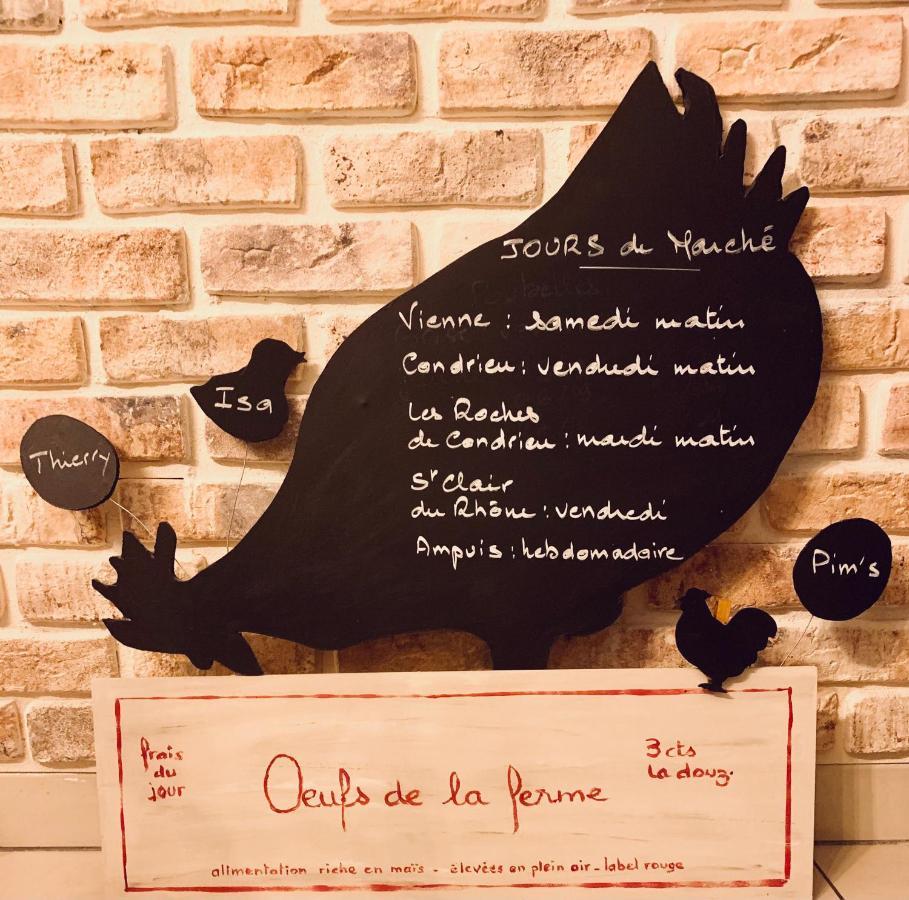 JOURS de Marché
Vienne : samedi matin
Condrieu : vendredi matin
Les Roches
de Condrieu : mardi matin
St Clair
du Rhône : vendredi
Ampuis : hebdomadaire
Isa
Thierry
Pim's
frais
du
jour
Oeufs de la ferme
3 cts
la douz.
alimentation riche en maïs - élevées en plein air - label rouge